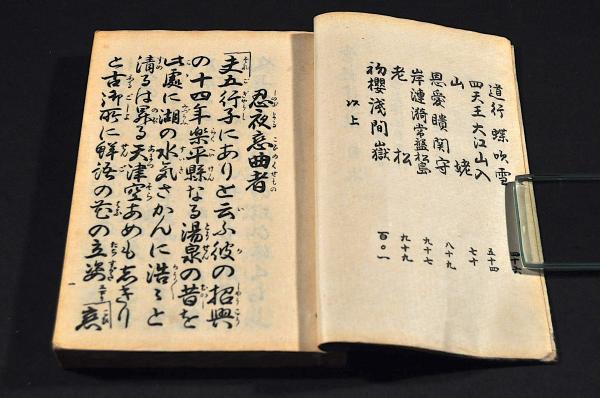 道行 蝶吹雪
四天王大江山入 五十四
山姥 七十
恩愛瞔関守 八十九
岸漣漪常盤松島 九十七
老松 九十九
初櫻浅間嶽 百〇一
以上
忍夜恋曲者
夫五行子にありと云ふ彼の紹興
の十四年樂平縣なる湯泉の昔を
此處に湖の水気さかんに浩々と
濤るは昇る天津空あめも志きり
と古御所に解語の花の立姿 恋
一